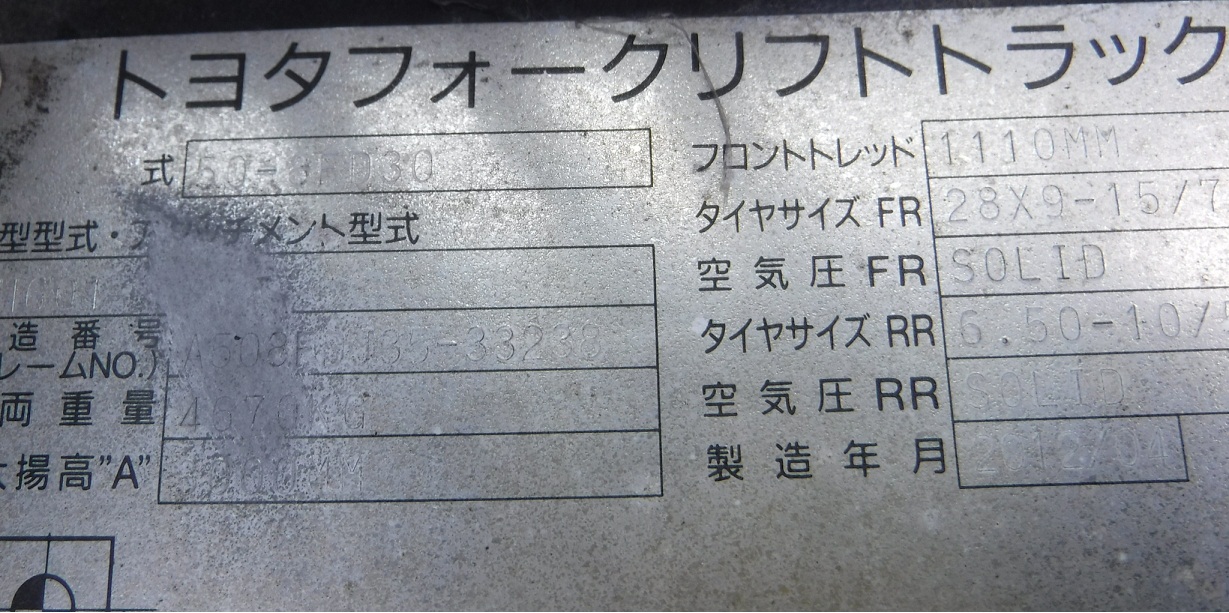 トヨタフォークリフトトラック
式 50-8FD30
フロントトレッド 1110MM
型型式・アタッチメント型式
タイヤサイズ FR 28X9-15/7
空気圧 FR SOLID
造番号
レームNO.)
タイヤサイズ RR 6.50-10/
両重量
空気圧 RR SOLID
揚高"A"
製造年月 2012/01